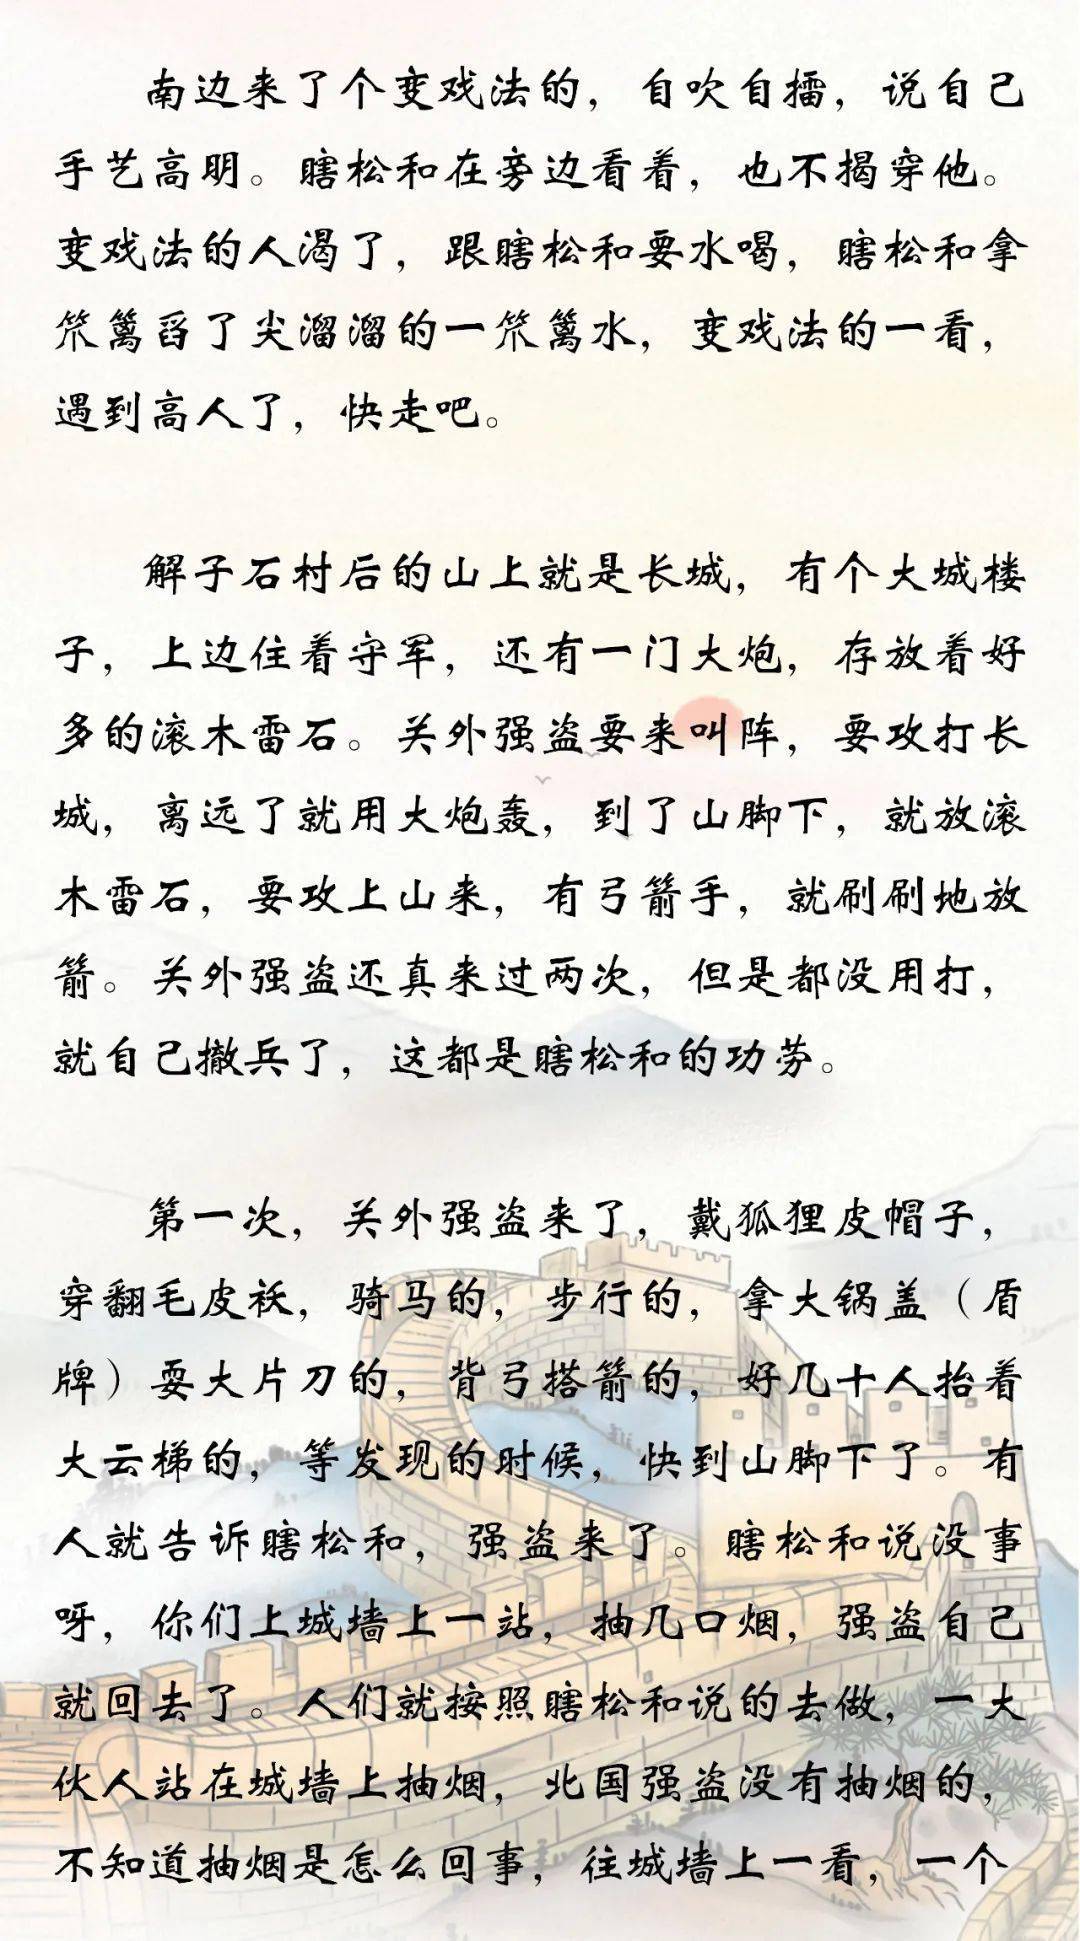 南边来了个变戏法的，自吹自擂，说自己
手艺高明。瞎松和在旁边看着，也不揭穿他。
变戏法的人渴了，跟瞎松和要水喝，瞎松和拿
笊篱舀了尖溜溜的一笊篱水，变戏法的一看，
遇到高人了，快走吧。
解子石村后的山上就是长城，有个大城楼
子，上边住着守军，还有一门大炮，存放着好
多的滚木雷石。关外强盗要来叫阵，要攻打长
城，离远了就用大炮轰，到了山脚下，就放滚
木雷石，要攻上山来，有弓箭手，就刷刷地放
箭。关外强盗还真来过两次，但是都没用打，
就自己撤兵了，这都是瞎松和的功劳。
第一次，关外强盗来了，戴狐狸皮帽子，
穿翻毛皮袄，骑马的，步行的，拿大锅盖（盾
牌）耍大片刀的，背弓搭箭的，好几十人抬着
大云梯的，等发现的时候，快到山脚下了。有
人就告诉瞎松和，强盗来了。瞎松和说没事
呀，你们上城墙上一站，抽几口烟，强盗自己
就回去了。人们就按照瞎松和说的去做，一大
伙人站在城墙上抽烟，北国强盗没有抽烟的，
不知道抽烟是怎么回事，往城墙上一看，一个